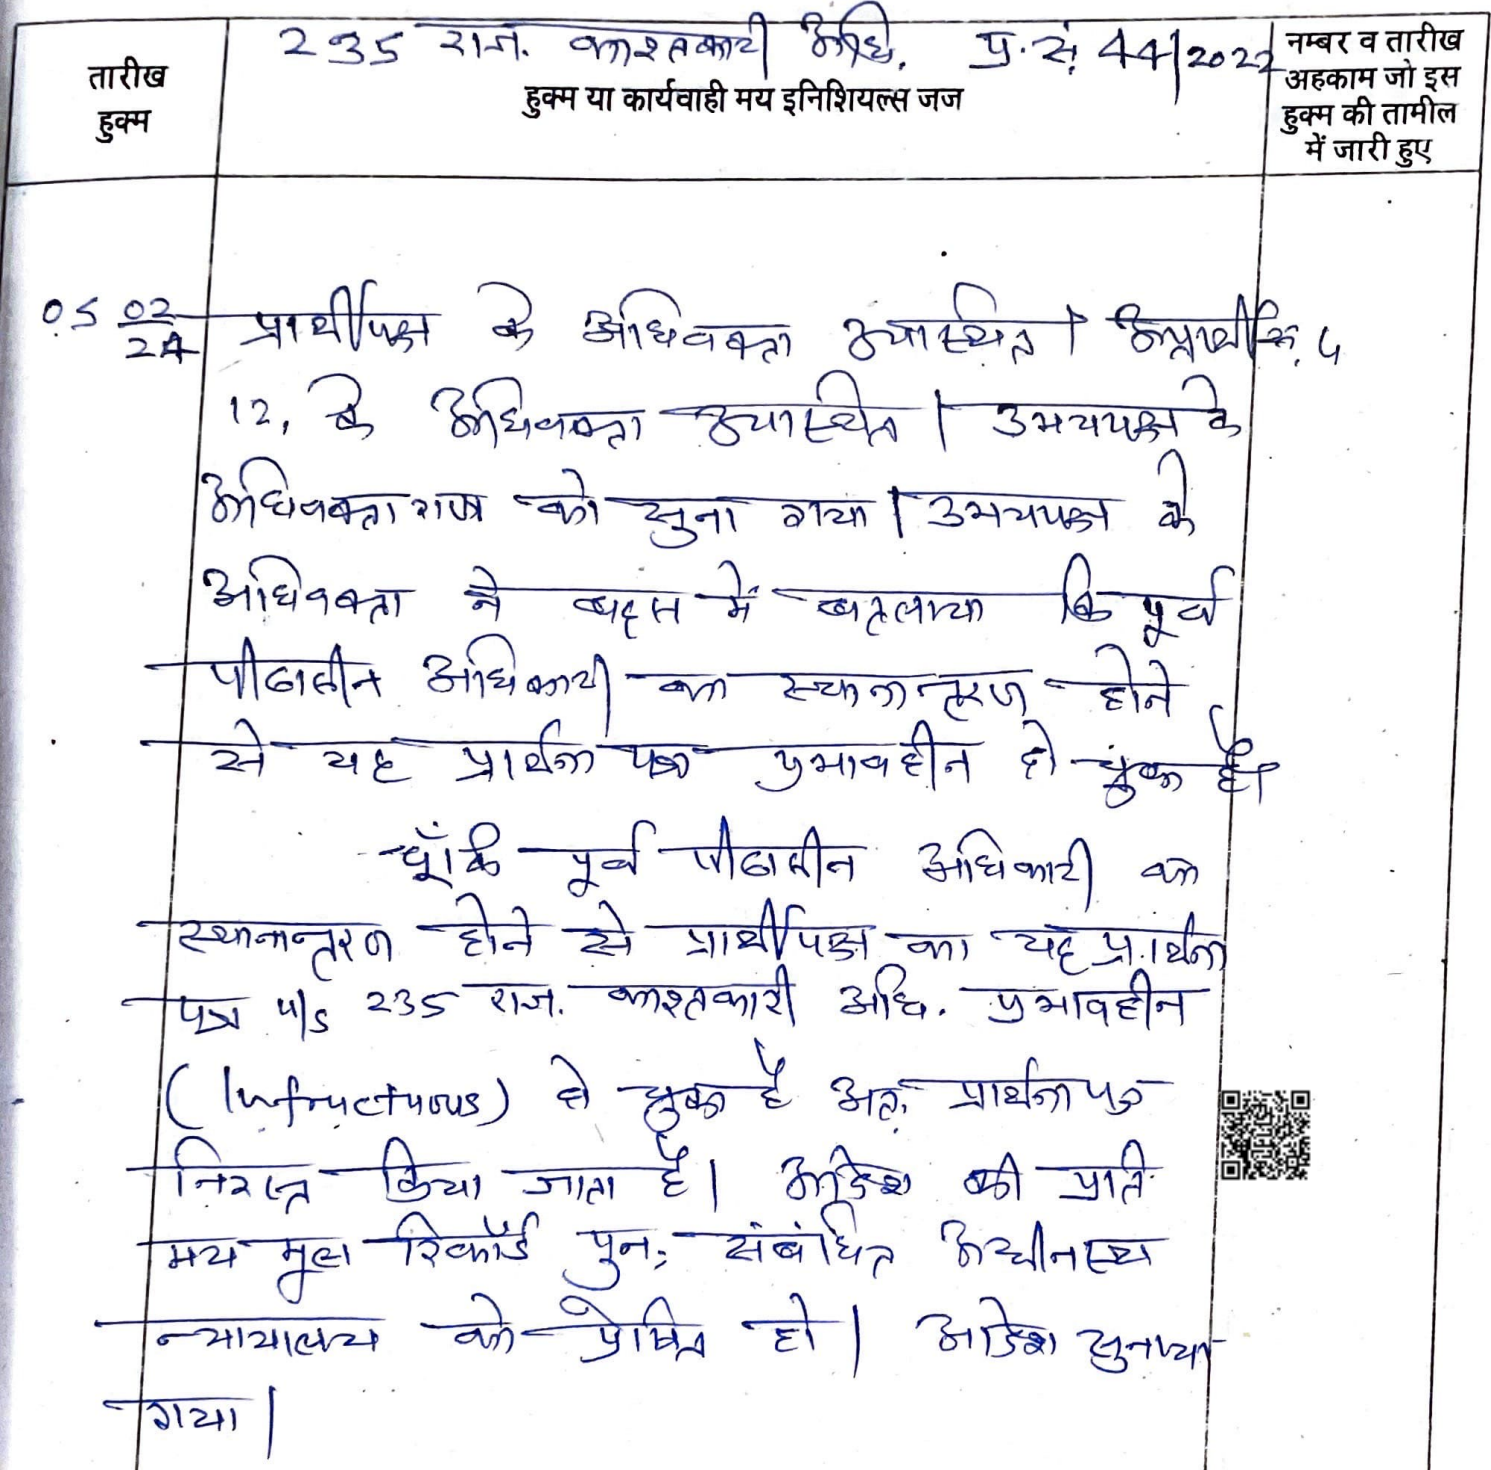 235 राज. काश्तकारी अधि. प्र.सं. 44/2022
तारीख
हुक्म
हुक्म या कार्यवाही मय इनिशियल्स जज
नम्बर व तारीख
अहकाम जो इस
हुक्म की तामील
में जारी हुए
05 02/24 प्रार्थीपक्ष के अधिवक्ता उपस्थित। अप्रार्थी क्र. 4
12, के अधिवक्ता उपस्थित। उभयपक्ष के
अधिवक्तागण को सुना गया। उभयपक्ष के
अधिवक्ता ने बहस में बतलाया कि पूर्व
पीठासीन अधिकारी का स्थानान्तरण होने
से यह प्रार्थना पत्र प्रभावहीन हो चुका है।
चूँकि पूर्व पीठासीन अधिकारी का
स्थानान्तरण होने से प्रार्थीपक्ष का यह प्रार्थना
पत्र u/s 235 राज. काश्तकारी अधि. प्रभावहीन
(Infructuous) हो चुका है अतः प्रार्थना पत्र
निरस्त किया जाता है। आदेश की प्रति
मय मूल रिकॉर्ड पुनः संबंधित अधीनस्थ
न्यायालय को प्रेषित हो। आदेश सुनाया
गया।